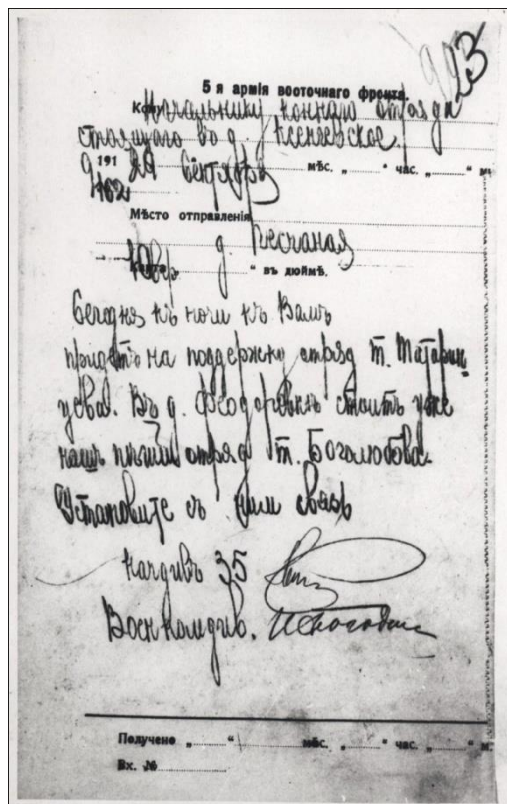 23
5 я армія восточнаго фронта.
Кому Начальнику коннаго отряда
стоящаго въ д. Ксеньевское.
191 сентября мѣс. „ “ час. „ “ м.
№ 162
Мѣсто отправленія
д Песчаная
Карта „ “ въ дюймѣ.
Сегодня къ ночи къ Вамъ
придетъ на поддержку отряд т. Татарин-
цева. Въ д. Феодоровкѣ стоитъ уже
нашъ пѣший отряд т. Боголюбова.
Установите съ ним связь
Начдивъ 35
Воен комдив.
Получено „ “ мѣс. „ “ час. „ “ м.
Вх. №